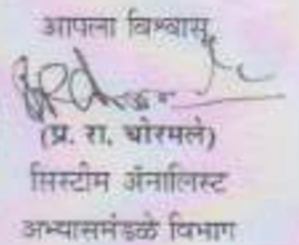 आपला विश्वासू,
(प्र. रा. थोरमले)
सिस्टीम ॲनालिस्ट
अभ्यासमंडळे विभाग